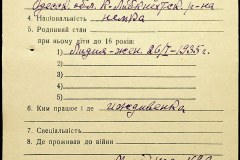 Одесск. обл. К-Либкнехтск. р-на
4. Національність немка
5. Родинний стан
при ньому діти до 16 років:
1. Лидия-жен. 26/I-1935 г.
2.
3.
4.
5.
6. Ким працює і де иждивенка
7. Спеціяльність
8. Де проживав до війни